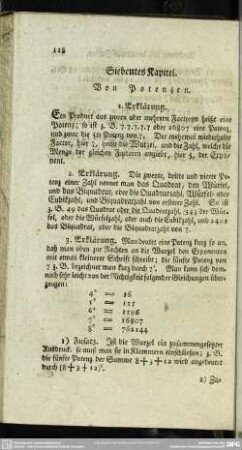 118
Siebentes Kapitel.
Von Potenzen.
1. Erklärung.
Ein Product aus zween oder mehrern Factoren heißt eine
Potenz; so ist z. B. 7.7.7.7.7 oder 16807 eine Potenz,
und zwar die 5te Potenz von 7. Der mehrmal wiederholte
Factor, hier 7, heißt die Wurzel, und die Zahl, welche die
Menge der gleichen Factoren anzeigt, hier 5, der Expo-
nent.
2. Erklärung. Die zweyte, dritte und vierte Po-
tenz einer Zahl nennet man das Quadrat, den Würfel,
und das Biquadrat, oder die Quadratzahl, Würfel- oder
Cubikzahl, und Biquadratzahl von ersterer Zahl. So ist
z. B. 49 das Quadrat oder die Quadratzahl, 343 der Wür-
fel, oder die Würfelzahl, oder auch die Cubikzahl, und 2401
das Biquadrat, oder die Biquadratzahl von 7.
3. Erklärung. Man deutet eine Potenz kurz so an,
daß man oben zur Rechten an die Wurzel den Exponenten
mit etwas kleinerer Schrift schreibt; die fünfte Potenz von
7 z. B. bezeichnet man kurz durch 7⁵. Man kann sich dem-
nach sehr leicht von der Richtigkeit folgender Gleichungen über-
zeugen:
4² = 16
5³ = 125
6⁴ = 1296
7⁵ = 16807
8⁶ = 262144
1) Zusatz. Ist die Wurzel ein zusammengesetzter
Ausdruck, so muß man sie in Klammern einschließen; z. B.
die fünfte Potenz der Summe 8 + 3 + 12 wird angedeutet
durch (8 + 3 + 12)⁵.
2) Zu-